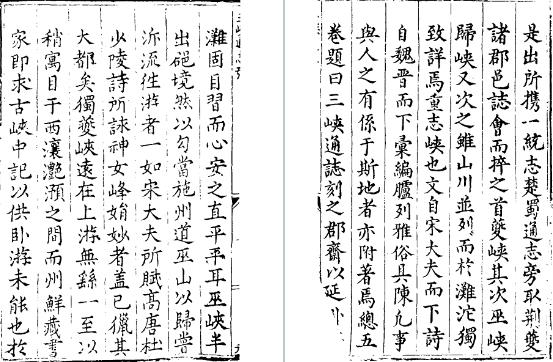 灘固目習而心安之直平平耳巫峽半
出絕境然以勾當施州道巫山以歸嘗
泝流徃游者一如宋大夫所賦高唐杜
少陵詩所詠神女峰娟妙者盖已獵其
大都矣獨夔峽遠在上游無繇一至以
稍寓目于西瀼灩澦之間而州鮮藏書
家即求古峽中記以供卧游未能也於
是出所攜一統志楚蜀通志旁取荊夔
諸郡邑誌會而捽之首夔峽其次巫峽
歸峽又次之雖山川並列而於灘沱獨
致詳焉重志峽也文自宋大夫而下詩
自魏晉而下彙編臚列雅俗具陳凡事
與人之有係于斯地者亦附著焉總五
卷題曰三峽通誌刻之郡齋以延